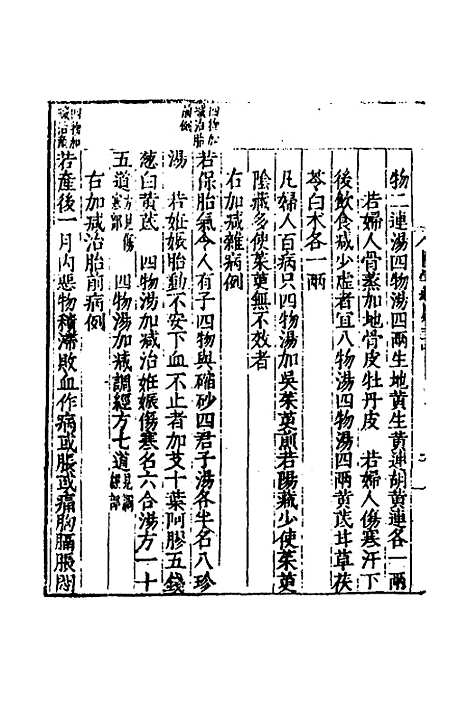 物二連湯四物湯四兩生地黃生黃連胡黃連各一兩
若婦人骨蒸加地骨皮牡丹皮　若婦人傷寒汗下
後飲食減少虛者宜八物湯四物湯四兩黃芪甘草茯
苓白朮各一兩
凡婦人百病只四物湯加吳茱萸煎若陽藏少使茱萸
陰藏多使茱萸無不效者
右加减雜病例
四物加
减治胎
前例
若保胎氣令人有子四物與縮砂四君子湯各半名八珍
湯　若妊娠胎動不安下血不止者加艾十葉阿膠五錢
葱白黃芪　四物湯加减治妊娠傷寒名六合湯方一十
五道方見傷寒部　四物湯加减調經方七道見調經部
右加减治胎前病例
四物加
减治產
若產後一月內惡物積滯敗血作痛或脹或痛胸膈脹悶